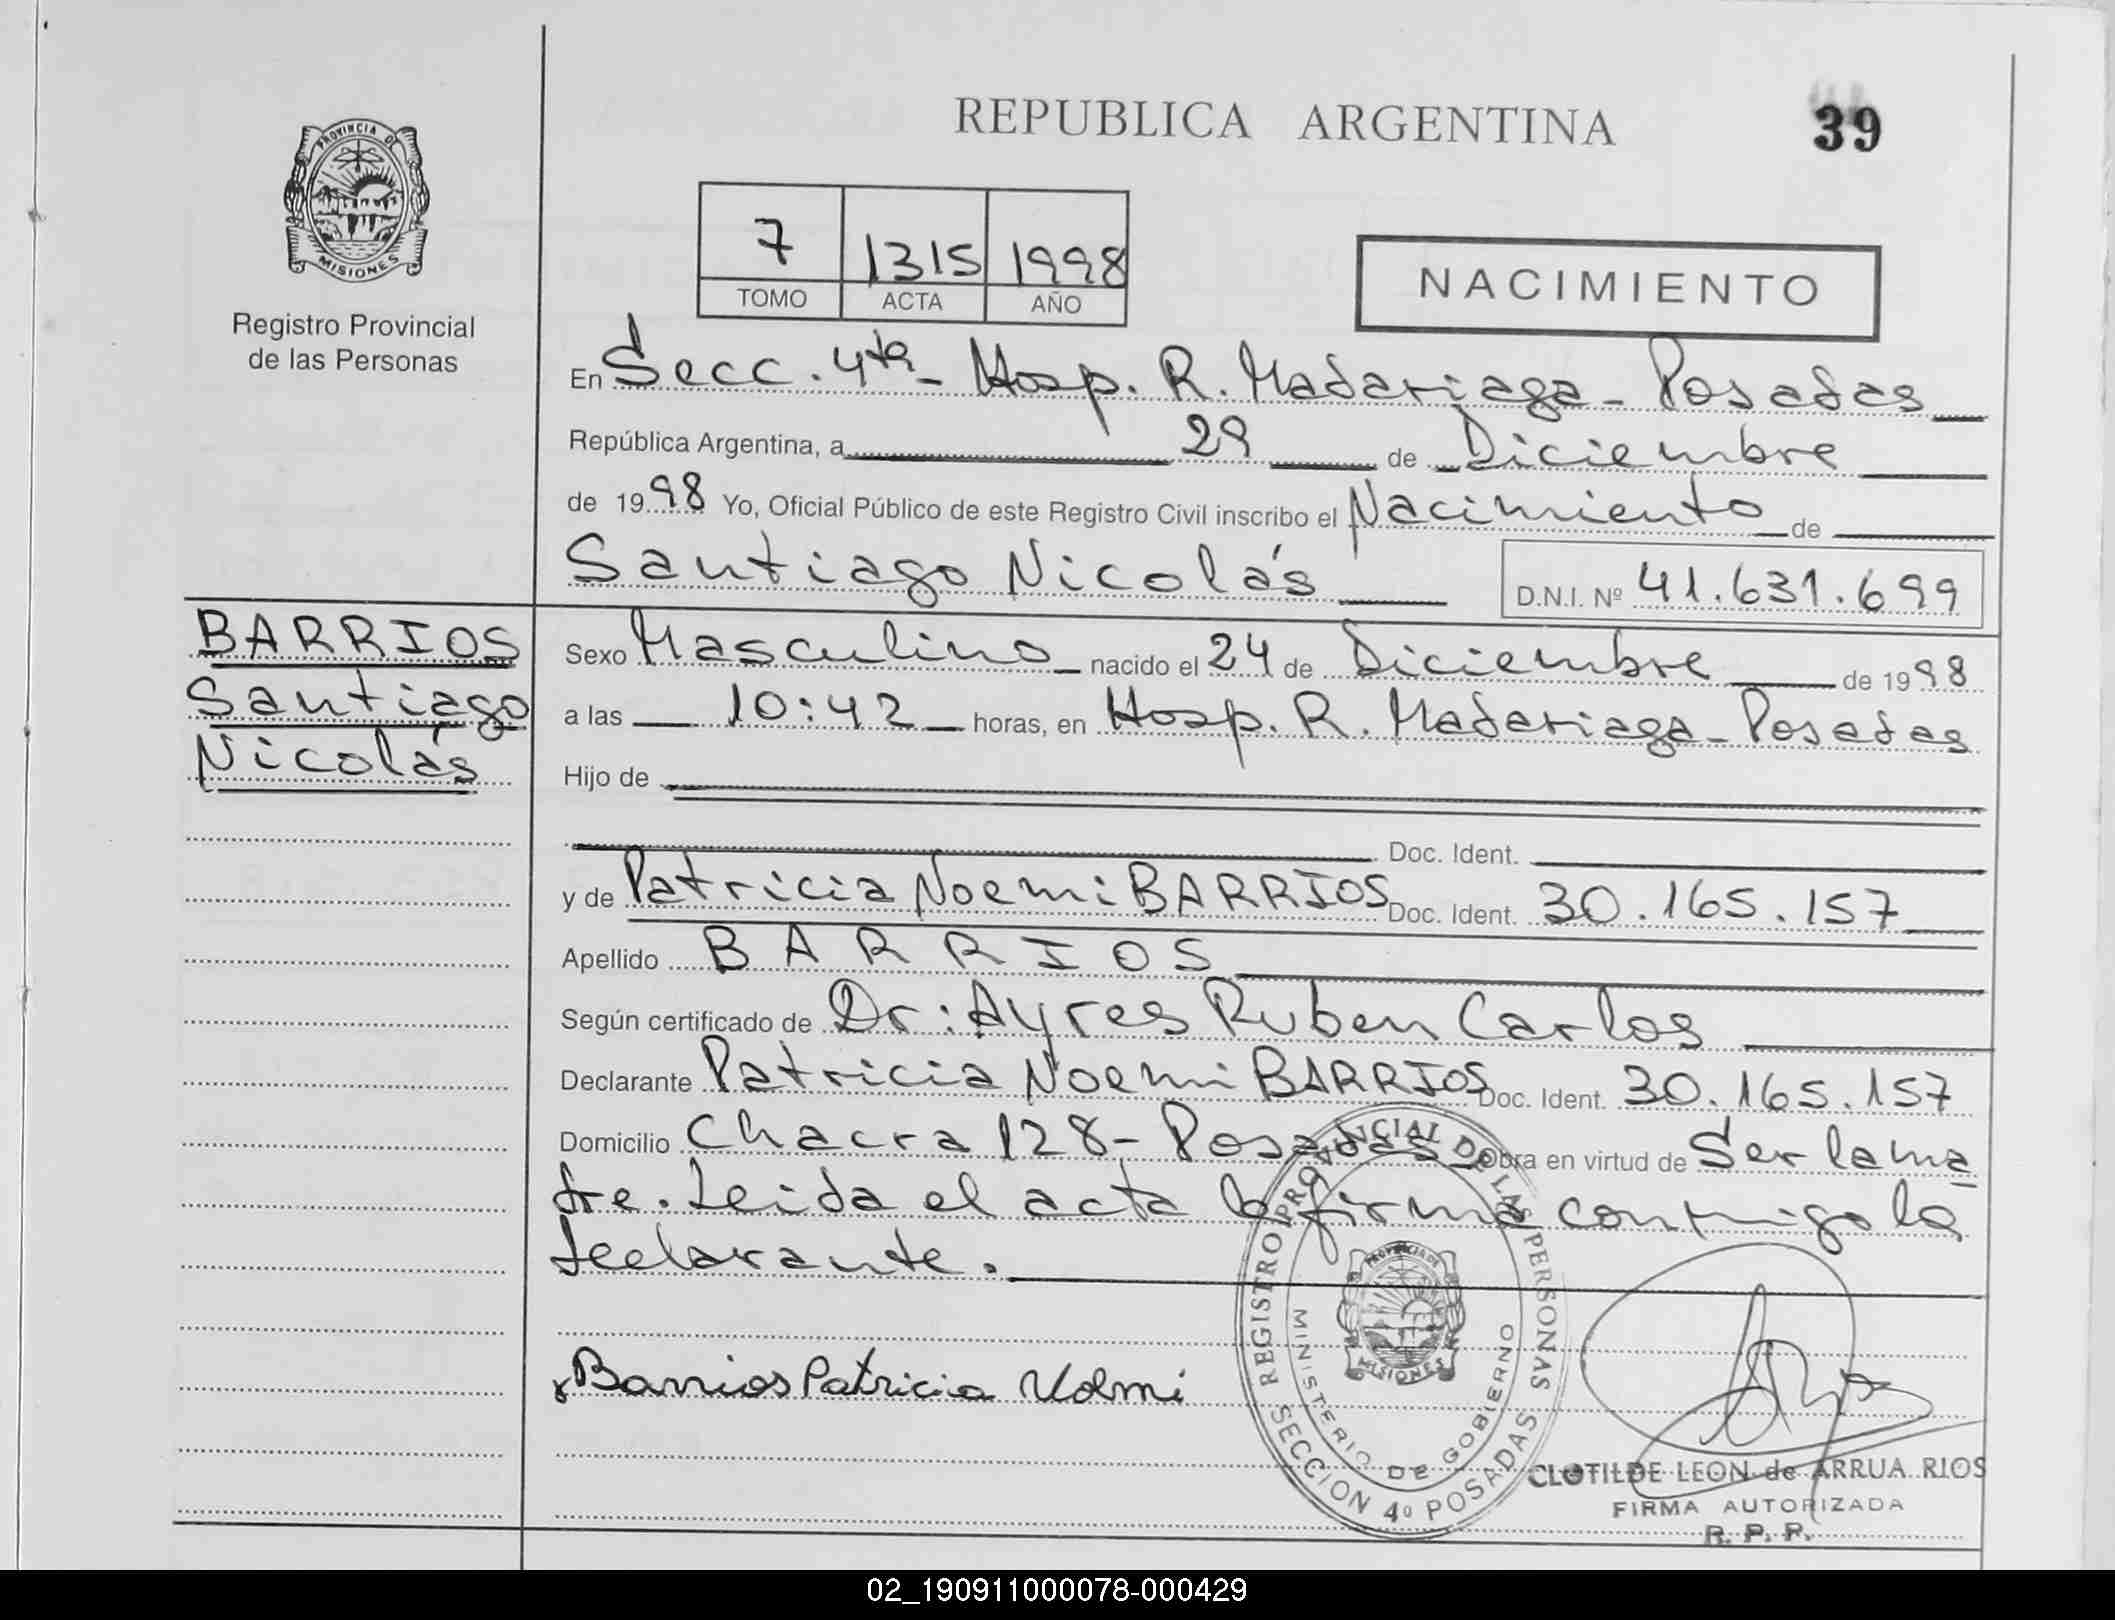 REPUBLICA ARGENTINA
39
PROVINCIA DE
MISIONES
Registro Provincial
de las Personas
7 1315 1998
TOMO ACTA AÑO
NACIMIENTO
En Secc. 4ta - Hosp. R. Madariaga - Posadas
República Argentina, a 29 de Diciembre
de 1998 Yo, Oficial Público de este Registro Civil inscribo el Nacimiento de
Santiago Nicolás D.N.I. Nº 41.631.699
BARRIOS
Santiago
Nicolás
Sexo Masculino nacido el 24 de Diciembre de 1998
a las 10:42 horas, en Hosp. R. Madariaga - Posadas
Hijo de
Doc. Ident.
y de Patricia Noemi BARRIOS Doc. Ident. 30.165.157
Apellido BARRIOS
Según certificado de Dr: Ayres Ruben Carlos
Declarante Patricia Noemi BARRIOS Doc. Ident. 30.165.157
Domicilio Chacra 128 - Posadas Obra en virtud de Ser la ma
dre. Leida el acta la firma conmigo la
declarante.
Barrios Patricia Noemi
REGISTRO PROVINCIAL DE LAS PERSONAS
MINISTERIO DE GOBIERNO
PROVINCIA DE
MISIONES
SECCION 4º POSADAS
CLOTILDE LEON de ARRUA RIOS
FIRMA AUTORIZADA
R. P. P.
02_190911000078-000429